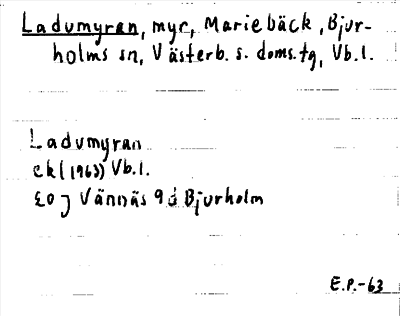 Ladumyran, myr, Mariebäck, Bjur-
holms sn, Västerb. s. doms.tg, Vb.l.
Ladumyran
ek (1963) Vb.l.
Vännäs 9 Bjurholm
E.P.-63